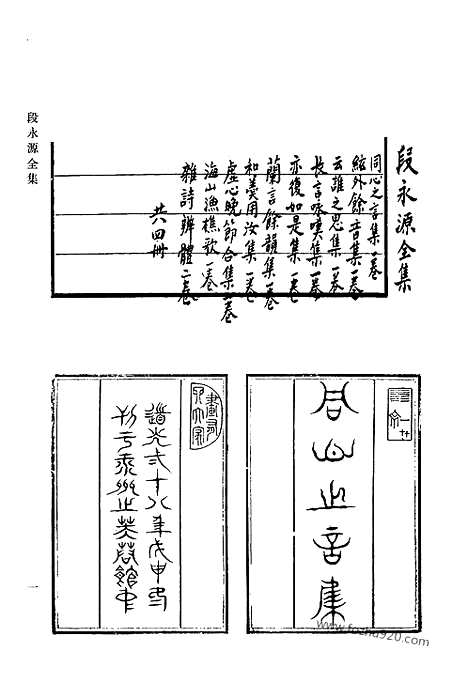 段永源全集
同心之言集一卷
絃外餘音集一卷
云誰之思集一卷
長言咏嘆集一卷
亦復如是集一卷
蘭言餘韻集一卷
和羹用汝集一卷
虛心晚節合集一卷
海山漁樵歌一卷
雜詩辨體二卷
共四冊
段永源全集
同心之言集
道光弍十八年戊申
一
www.fozhu920.com